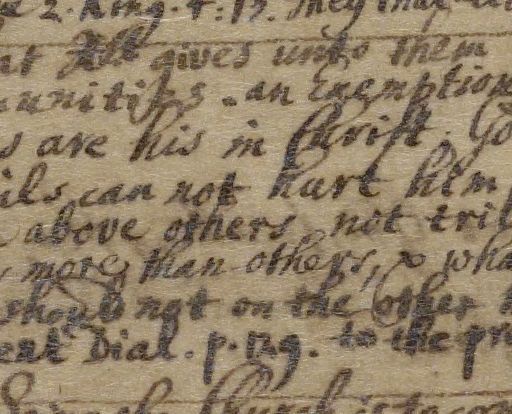 2. King. 4: 13. they may
at gives unto them
unities. an Exemption
s are his in Christ. Go
ils can not hurt him
above others not tri
more than others, & wha
should not on the other
ent Dial. p. 129. to the pr
Church